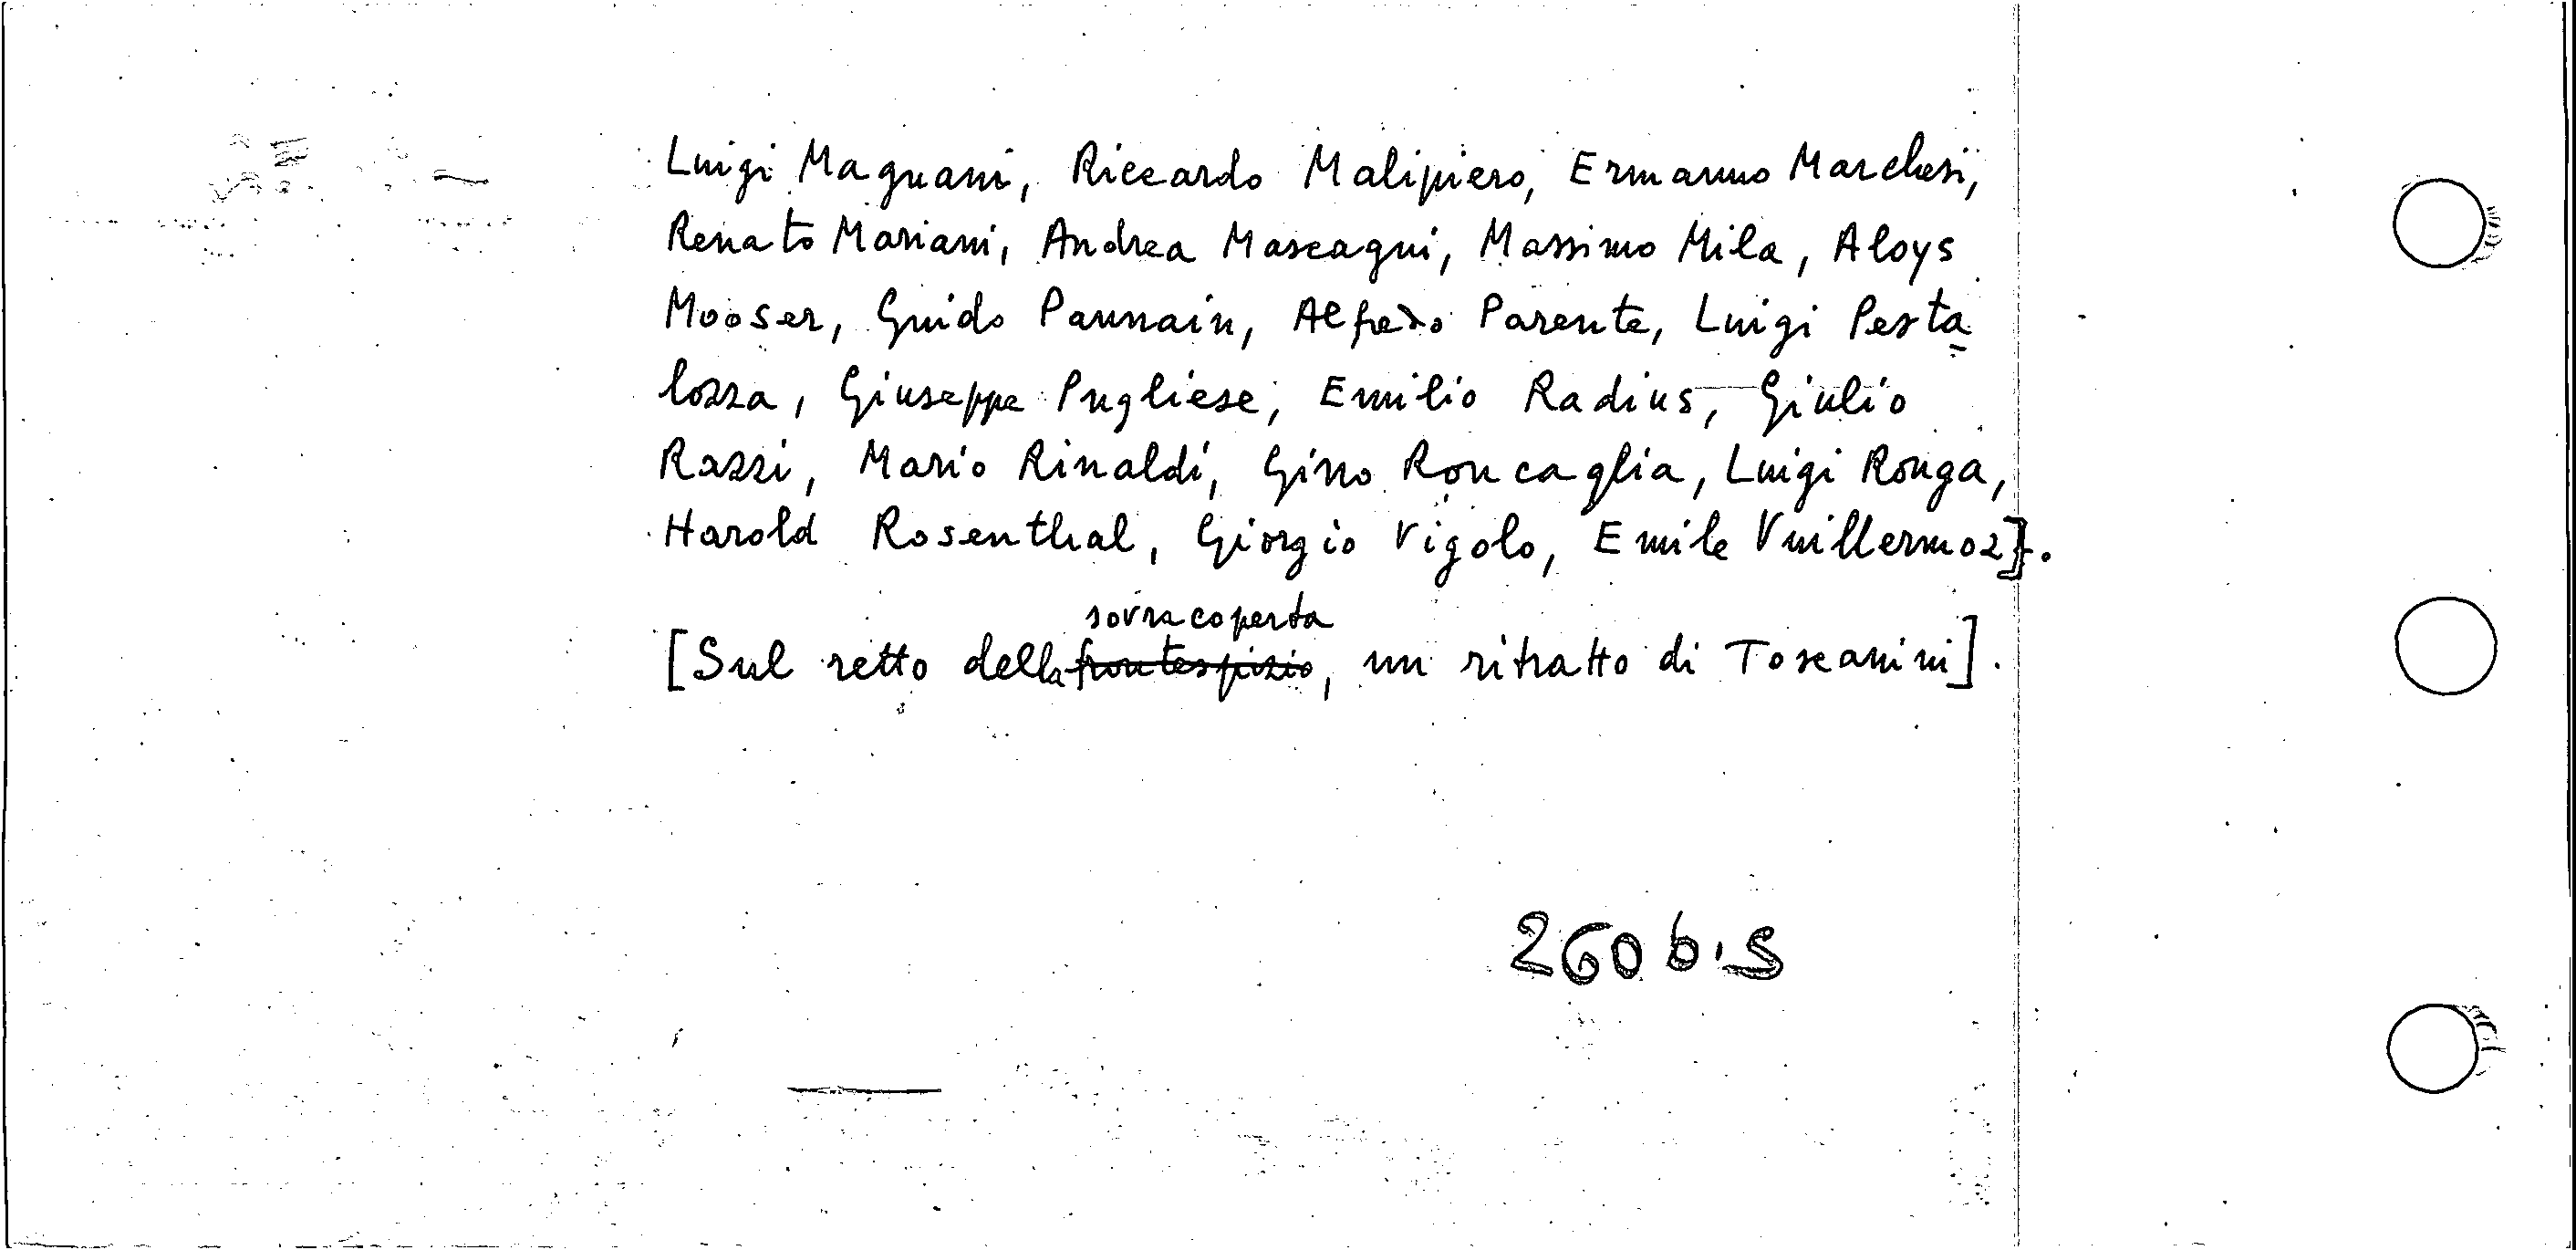 Luigi Magnani, Riccardo Malipiero, Ermanno Marchesi,
Renato Mariani, Andrea Mascagni, Massimo Mila, Aloys
Mooser, Guido Pannain, Alfredo Parente, Luigi Pesta=
lozza, Giuseppe Pugliese, Emilio Radius, Giulio
Razzi, Mario Rinaldi, Gino Roncaglia, Luigi Ronga,
Harold Rosenthal, Giorgio Vigolo, Emile Vuillermoz].
sovracoperta
[Sul retto della frontespizio, un ritratto di Toscanini].
260 bis